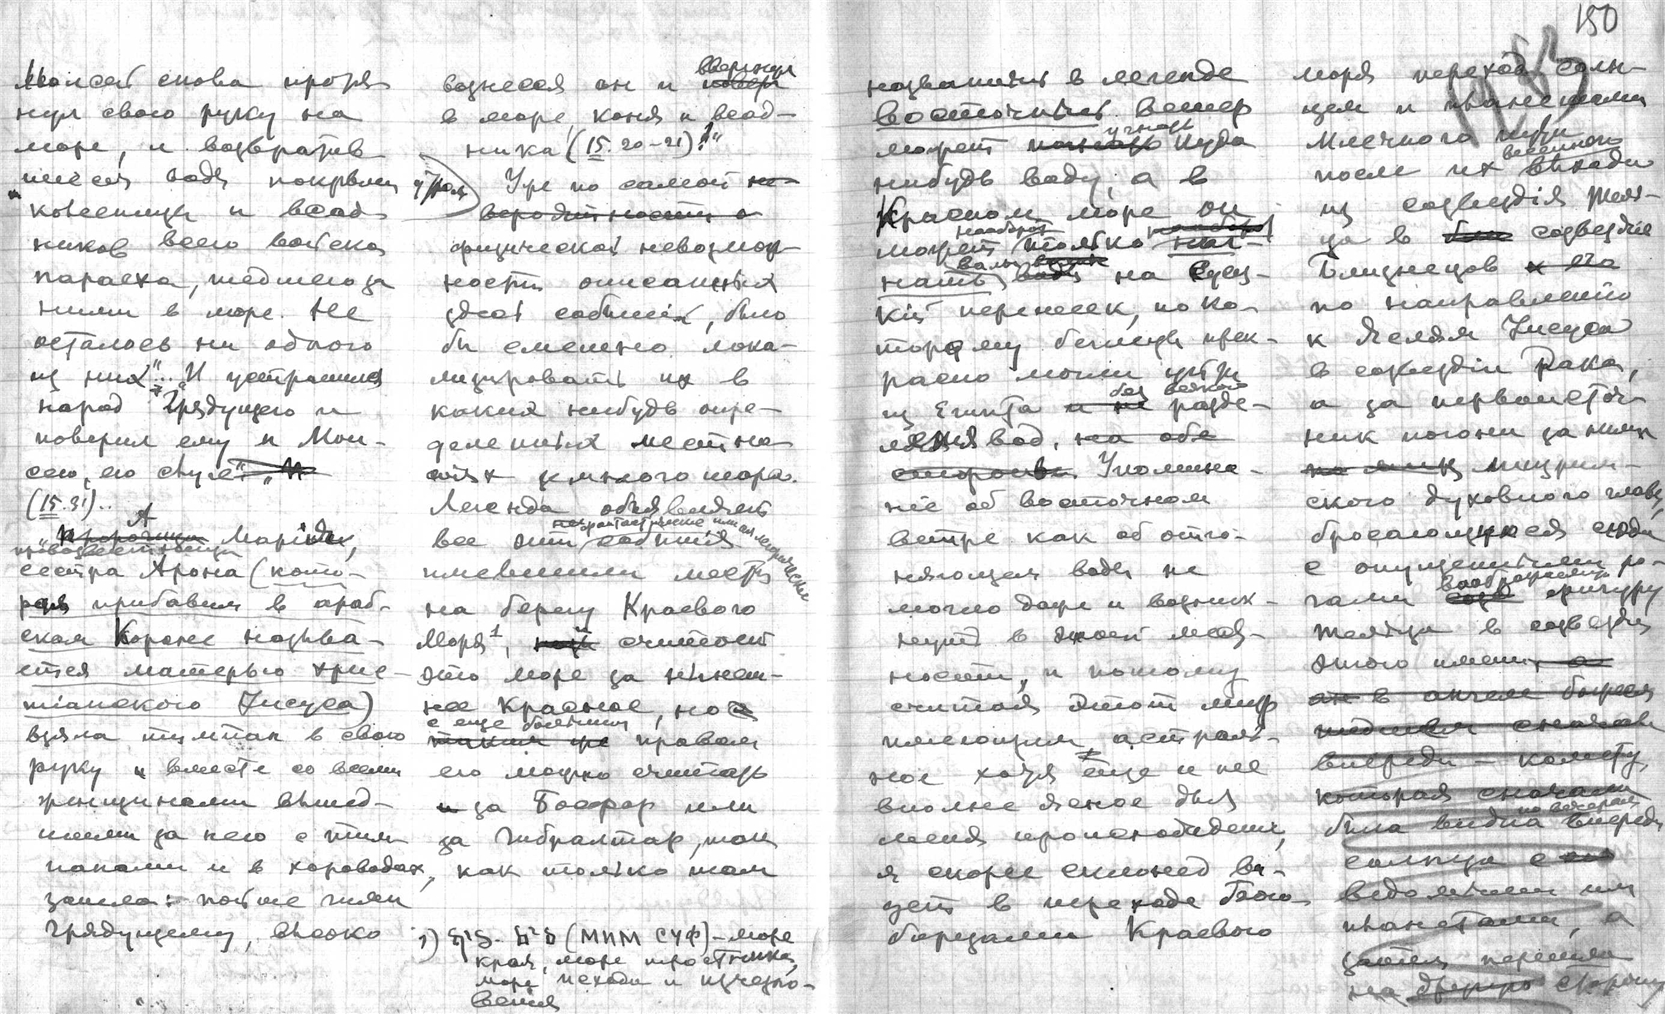 Моисей снова протя-
нул свою руку на
море, и возвратив-
шиеся воды покрыли
колесницы и всад-
ников всего войска
параска, шедшего за
ними в море. Не
осталось ни одного
из них"... "И устрашился
народ Грядущего и
поверил ему и Мои-
сею, его слуге".
(15.31)..
"А Мариам,
провозвестница
сестра Арона (кото-
рая прибавим в араб-
ском Коране называ-
ется матерью хрис-
тіанского Іисуса)
взяла тимпан в свою
руку и вместе со всеми
женщинами вышед-
шими за нею с тим-
панами и в хороводах,
запела: пойте гимн
Грядущему, высоко
вознесся он и ввергнул
в море коня и всад-
ника (15. 20-21)!"
Уже по самой
физической невозмож-
ности описанных
здесь событій, было
бы смешно лока-
лизировать их в
каких нибудь опре-
деленных местно-
стях земного шара.
Легенда объявляет
все эти события
имевшими место
на берегу Краевого
Моря¹, и считают
это море за нынеш-
нее Красное, но
с еще большим правом
его можно считать
за Босфор или
за Гибралтар, так
как только там
1) (МИМ СУФ) – море
края, море тростника,
море гибели и исчезно-
вения
названный в легенде
восточный ветер
может угнать куда
нибудь воду, а в
Красном море он
может наоборот только наг-
нать валы на Суэц-
кій перешеек, по ко-
торому беглецы прек-
расно могли уйти
из Египта без всякого разде-
ления вод. Упомина-
ніе об восточном
ветре как об отго-
няющем воды не
могло даже и возник-
нуть в этой мест-
ности, и потому
считая этот миф
имеющим астраль-
ное хотя еще и не
вполне ясное для
меня происхождение,
я скорее склонен ви-
деть в переходе Бого-
борцами Краевого
150
моря переход солн-
цем и планетами
Млечного пути
после их весеннего выхода
из созвездія Тель-
ца в созвездие
Близнецов
по направлению
к Яслям Іисуса
в созвездіи Рака,
а за первоисточ-
ник погони за ними
мицрим-
ского духовного главы,
бросающуюся сюда
с опущенными ро-
гами воображаемую фигуру
Тельца в созвездии
этого имени
впереди – комету,
которая сначала
была видна по вечерам впереди
солнца с
ведомыми им
планетами, а
затем перешла
на другую сторону